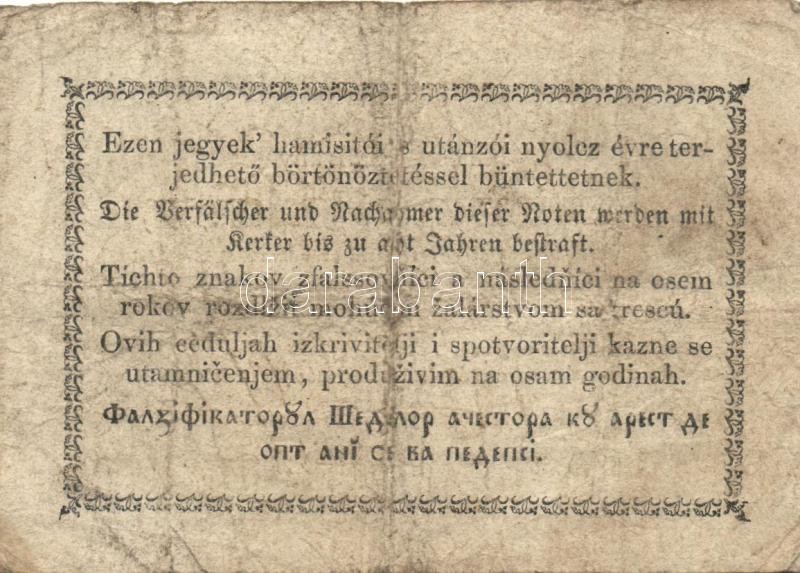 Ezen jegyek’ hamisitói ’s utánzói nyolcz évre ter-
jedhető börtönöztetéssel büntettetnek.
Die Verfälscher und Nachahmer dieser Noten werden mit
Kerker bis zu acht Jahren bestraft.
Tíchto znakov a následňíci na osem
rokov žalárstvom sa trescú.
Ovih ceduljah izkrivitelji i spotvoritelji kazne se
utamničenjem, produživim na osam godinah.
Фалꙃіфікаторꙋл Шеделор ачестора кꙋ арест де
опт анĭ се ва педепсі.
darabanth